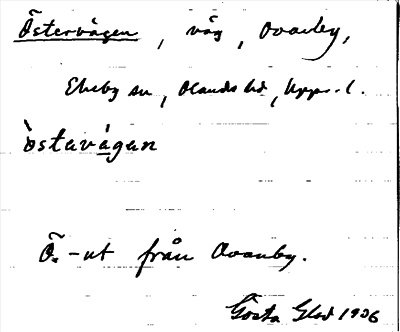 Östervägen, väg, Ovanby,
Ekeby sn, Olands hd, Upps. l.
òstavá̱gan
Ö. -ut från Ovanby.
Gösta Glad 1936